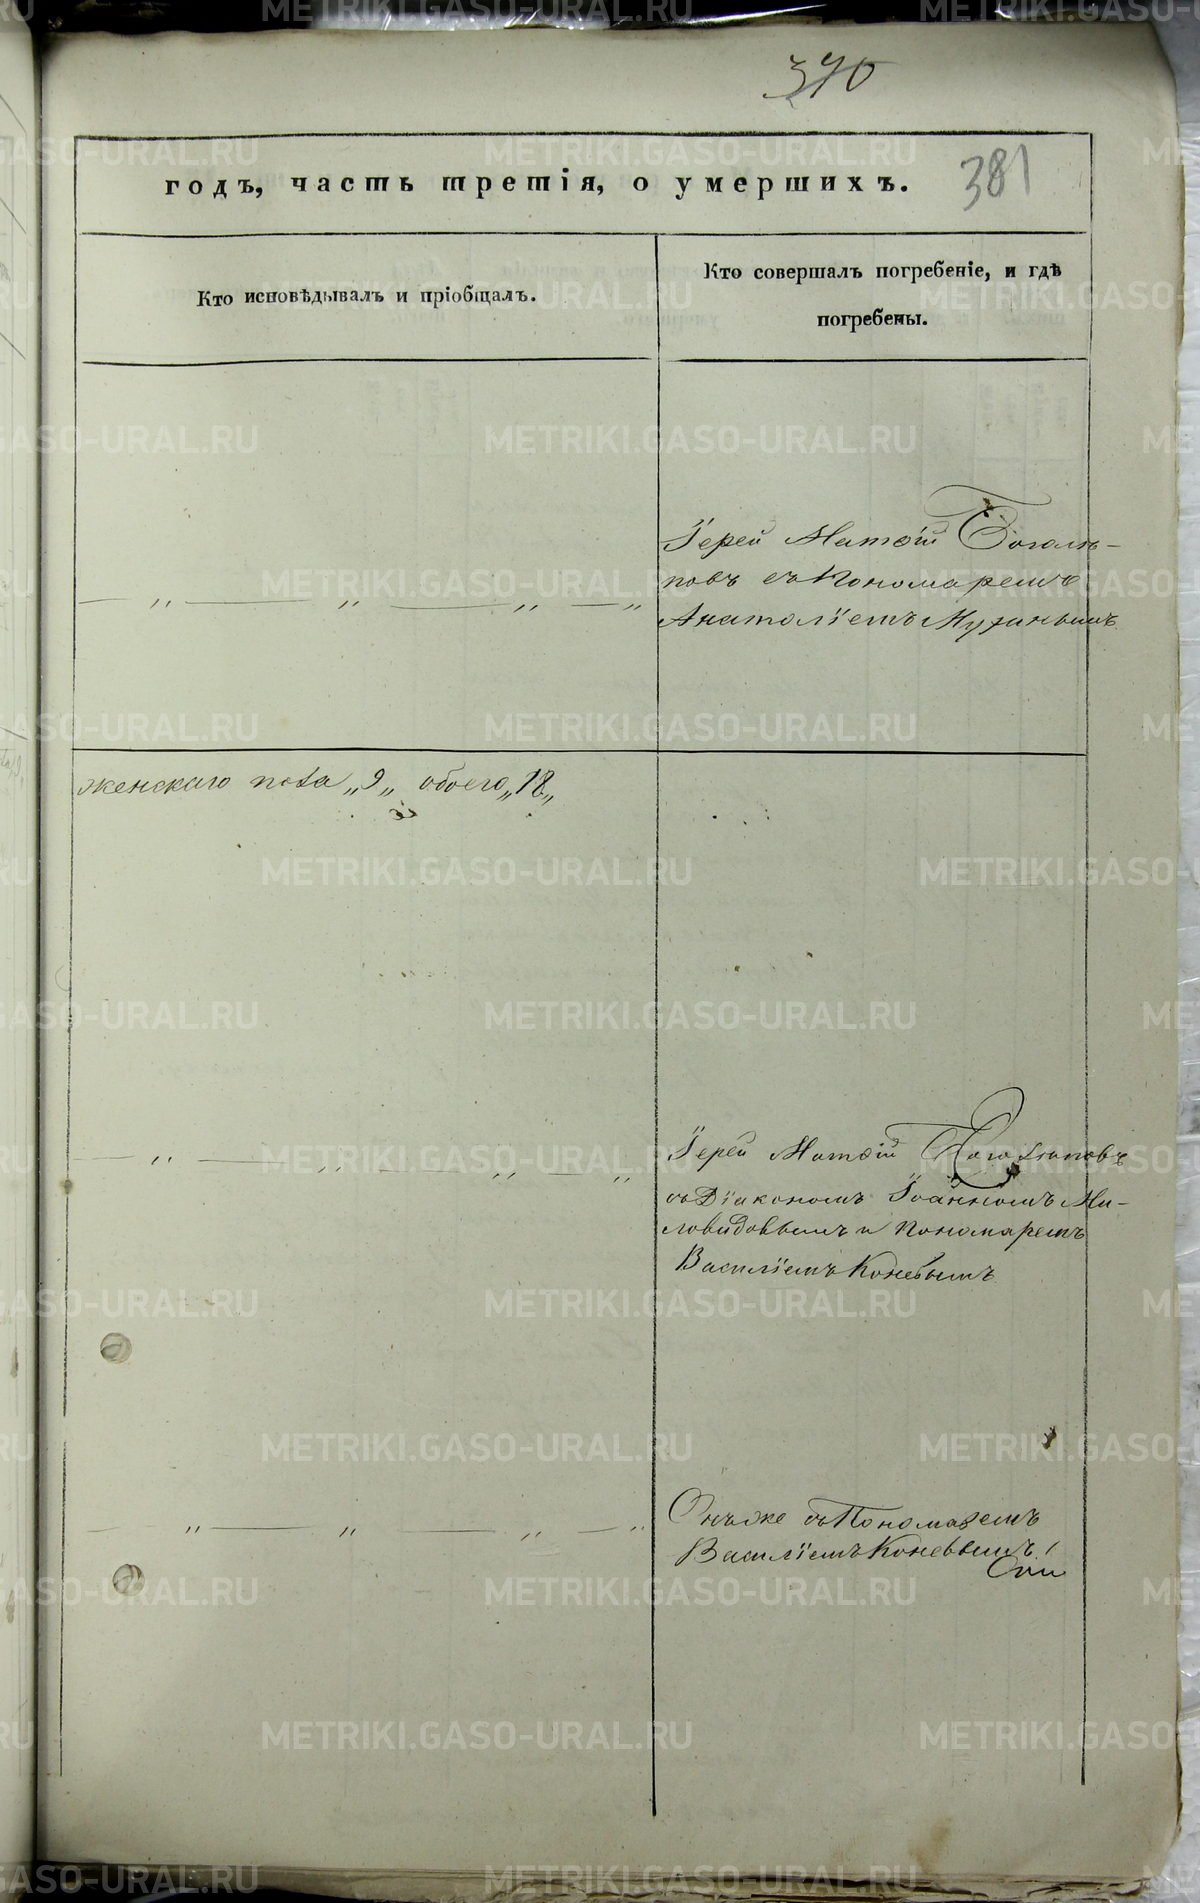 370
381
годъ, часть третія, о умершихъ.
Кто исповѣдывалъ и пріобщалъ.
Кто совершалъ погребеніе, и гдѣ
погребены.
Іерей Матѳій Боголѣ-
повъ съ Пономаремъ
— „ — „ — „ — „
Анатоліемъ Мухинымъ
женскаго пола „9„ обоего „18„
Іерей Матѳій Боголѣповъ
— „ — „ — „ — „
съ Діакономъ Іоанномъ Ми-
ловидовымъ и Пономаремъ
Василіемъ Коневымъ
Онъ же съ Пономаремъ
— „ — „ — „ — „
Василіемъ Коневымъ
METRIKI.GASO-URAL.RU